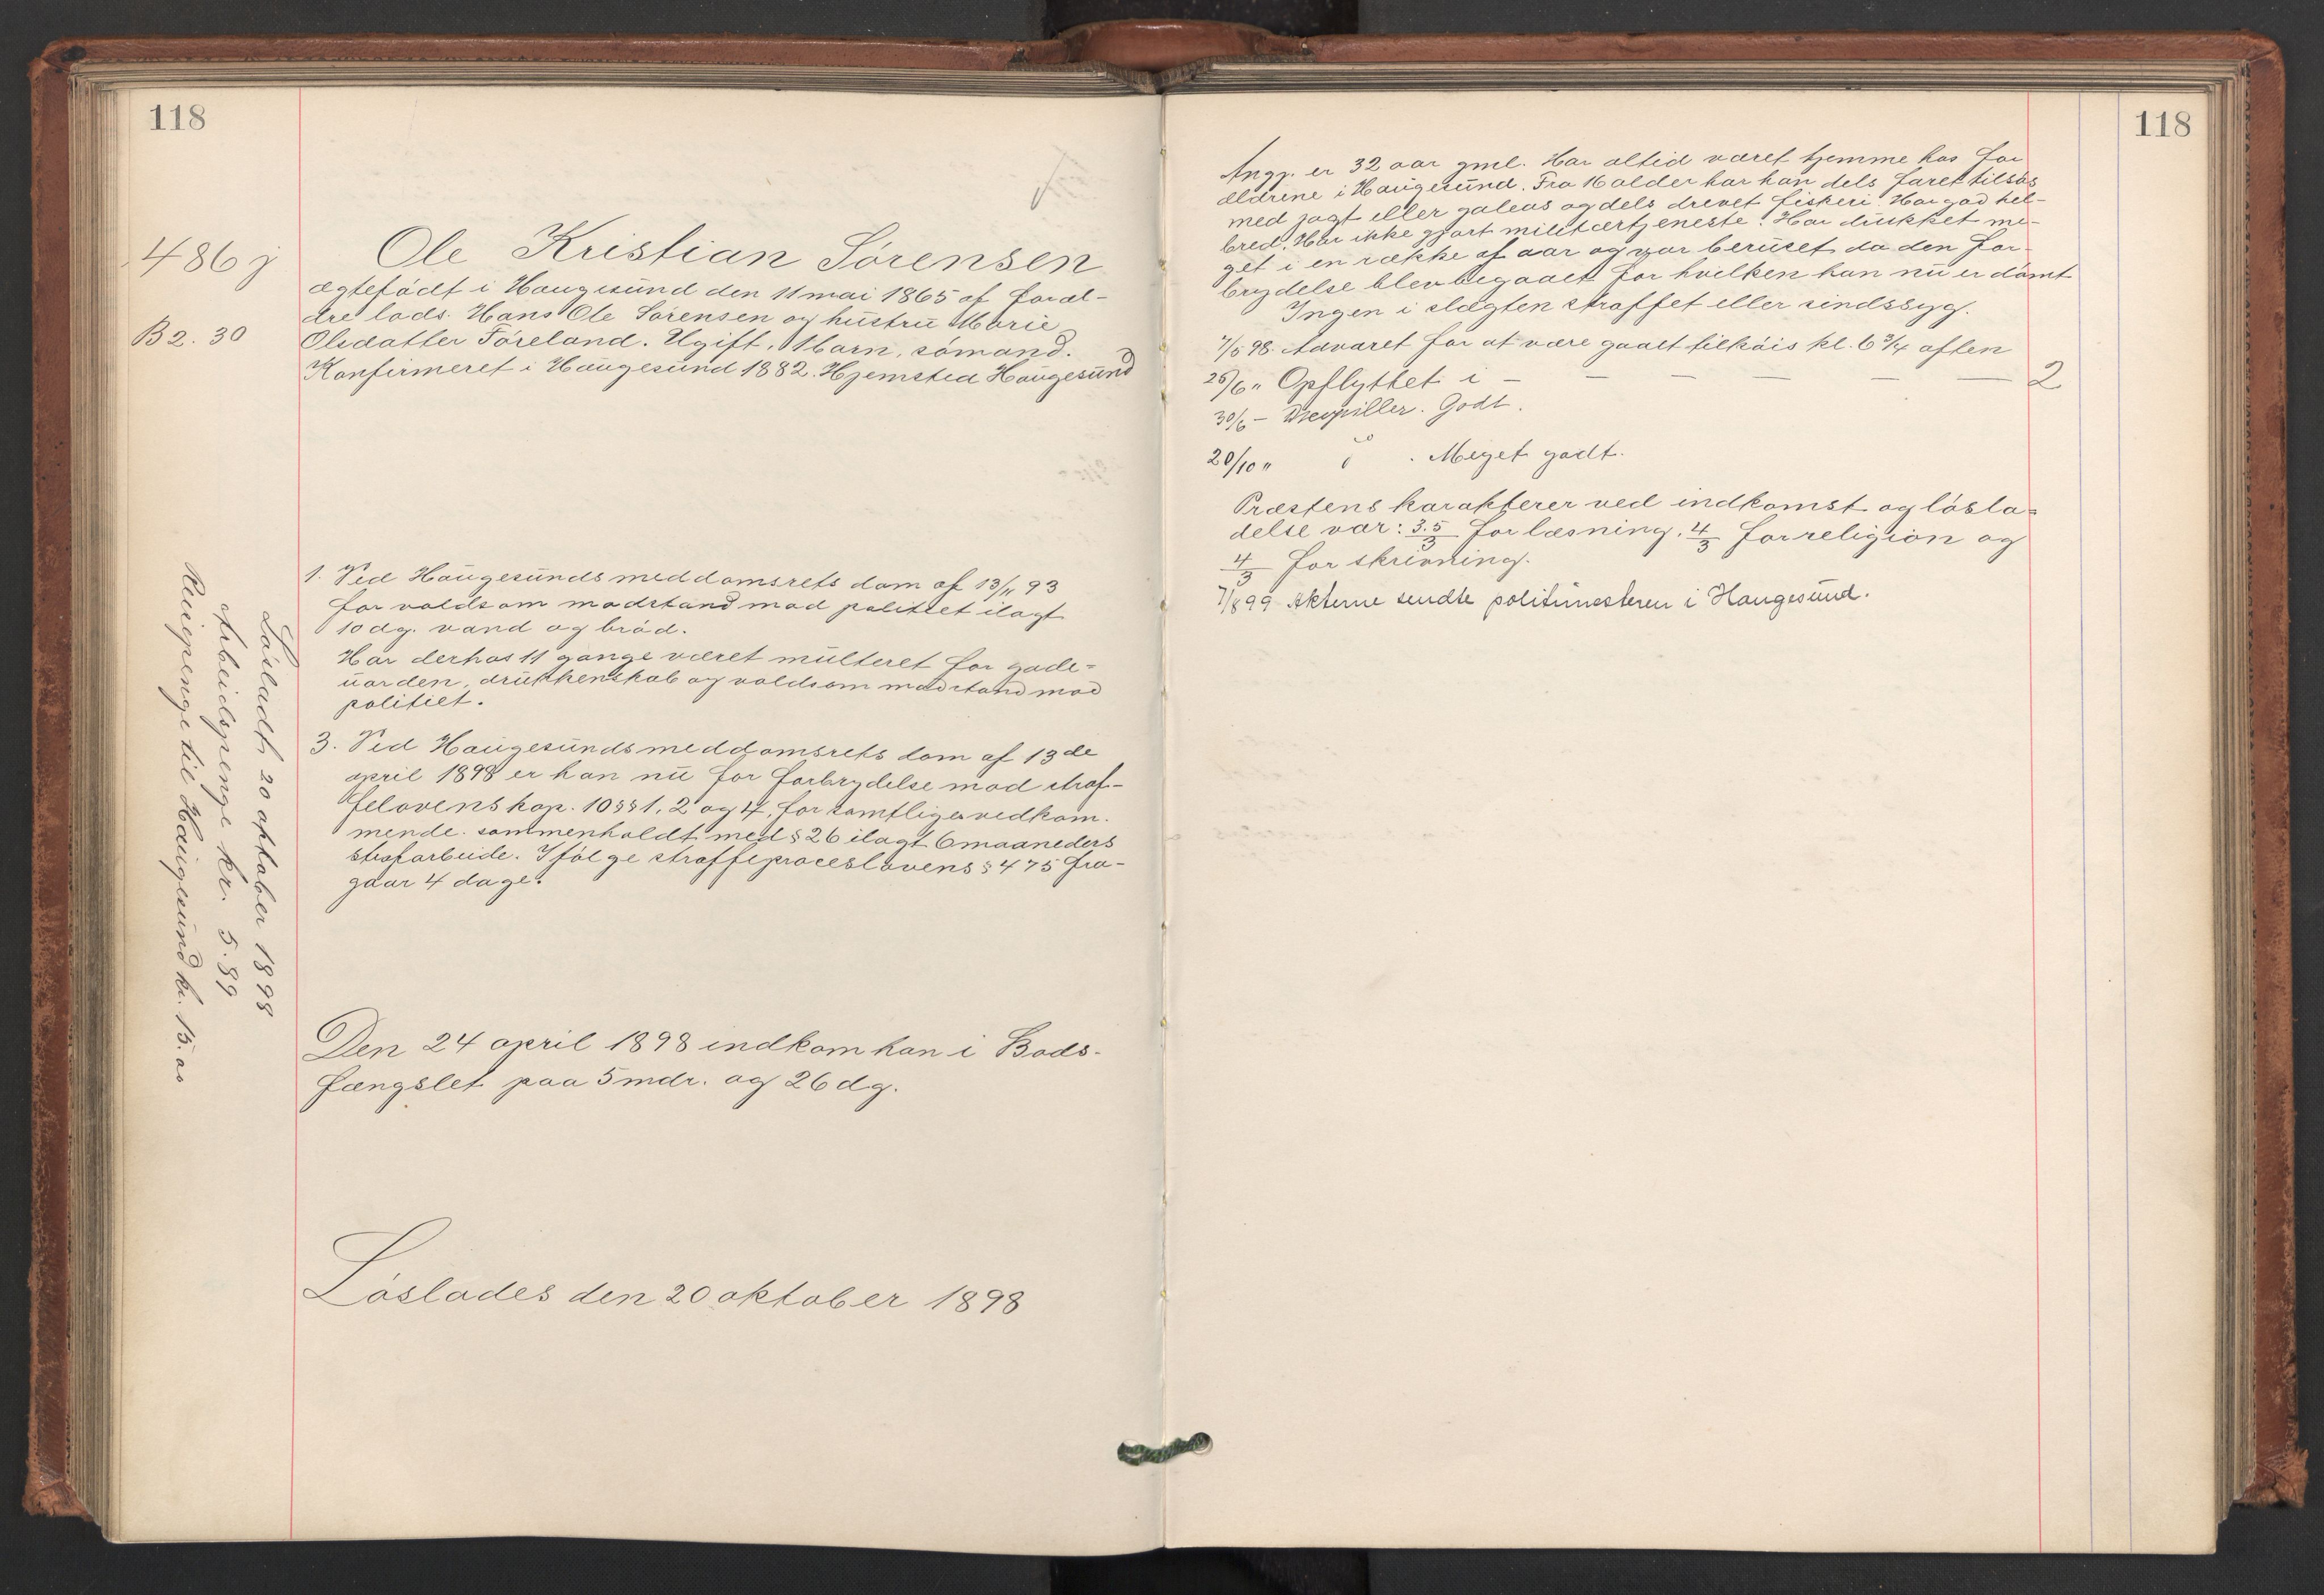 118
486 j
B 2. 30
Ole Kristian Sörensen
ægtefödt i Haugesund den 11 mai 1865 af foræl-
dre lods. Hans Ole Sörensen og hustru Marie
Olsdatter Föreland. Ugift, 1 barn, sömand.
Konfirmeret i Haugesund 1882. Hjemsted Haugesund
1. Ved Haugesunds meddomsrets dom af 13/11 93
for voldsom modstand mod politiet ilagt
10 dg. vand og bröd.
Har derhos 11 gange været multeret for gade-
uorden, drukkenskab og voldsom modstand mod
politiet.
3. Ved Haugesunds meddomsrets dom af 13de
april 1898 er han nu for forbrydelse mod straf-
felovens kap. 10 §§ 1, 2 og 4, for samtliges vedkom.
mende. sammenholdt med § 26 ilagt 6 maaneders
strafarbeide. Ifölge straffeproceslovens § 475 fra-
gaar 4 dage.
Den 24 april 1898 indkom han i Bods-
fængslet paa 5 mdr. og 26 dg.
Löslades den 20 oktober 1898
Lösladt 20 oktober 1898
Arbeidspenge kr. 5.89
Reisepenge til Haugesund kr. 15.00
118
Angj. er 32 aar gml. Har altid været hjemme hos for
ældrene i Haugesund. Fra 16 alder har han dels faret tilsös
med jagt eller galeas og dels drevet fiskeri. Har god hel-
bred. Har ikke gjort militærtjeneste. Har drukket me-
get i en række af aar og var beruset da den for-
brydelse blev begaaet for hvilken han nu er dömt
Ingen i slægten straffet eller sindssyg.
7/5 98. Advaret for at være gaaet tilköis kl. 6 3/4 aften
26/6 " Opflyttet i — — — — — — 2
30/6 – Drevpiller. Godt.
20/10 " do . Meget godt.
Præstens karakterer ved indkomst og lösla-
delse var: 3.5/3 for læsning, 4/3 for religion og
4/3 for skrivning.
7/8 99 Akterne sendte politimesteren i Haugesund.